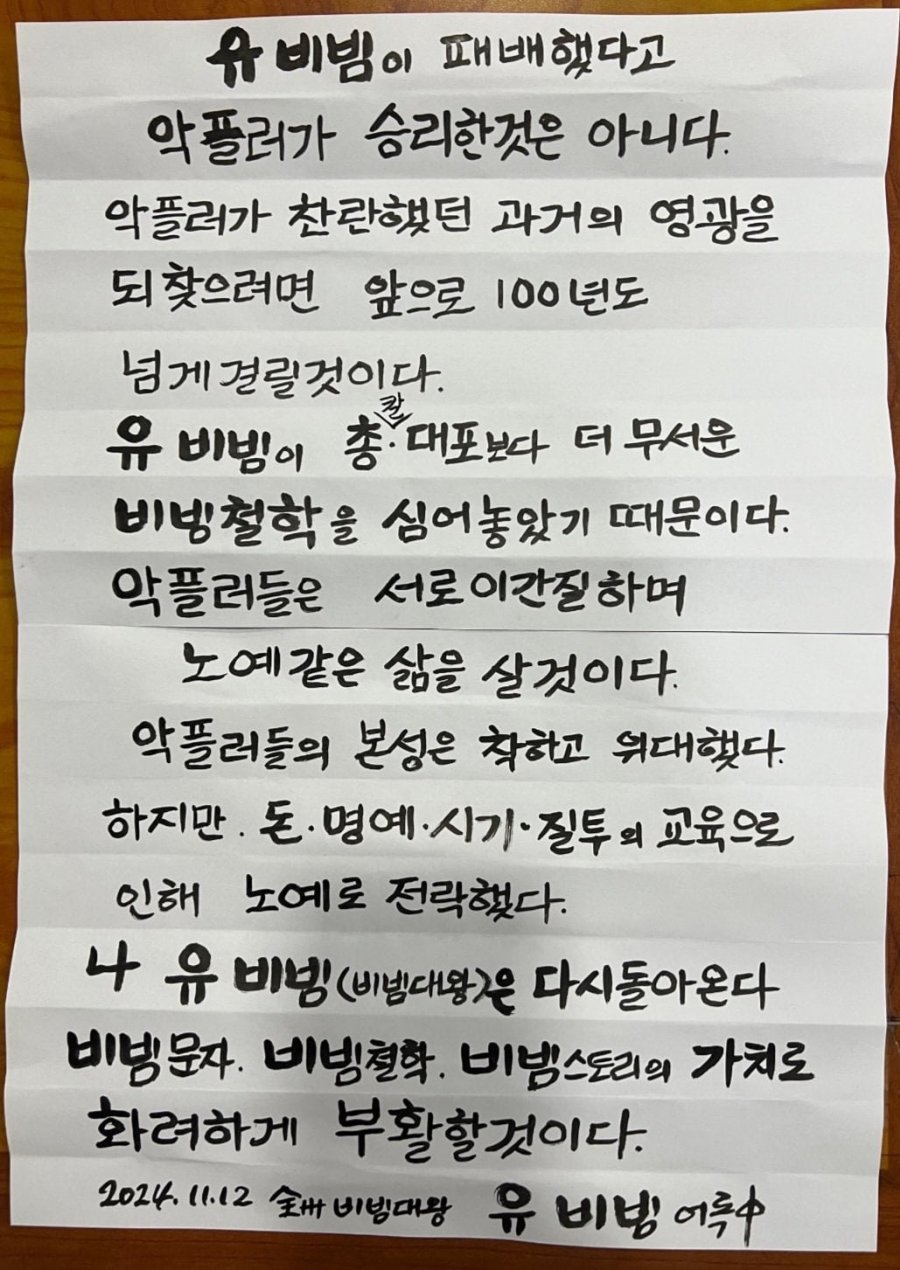 유 비빔이 패배했다고
악플러가 승리한것은 아니다.
악플러가 찬란했던 과거의 영광을
되찾으려면 앞으로 100년도
넘게걸릴것이다.
유 비빔이 총·칼 대포보다 더 무서운
비빙철학을 심어놓았기 때문이다.
악플러들은 서로이간질하며
노예같은 삶을 살것이다.
악플러들의 본성은 착하고 위대했다.
하지만. 돈·명예·시기·질투의 교육으로
인해 노예로 전락했다.
나 유 비빔(비빔대왕)은 다시돌아온다
비빔문자. 비빔철학. 비빔스토리의 가치로
화려하게 부활할것이다.
2024.11.12 全州 비빔대왕 유 비빔 어록中